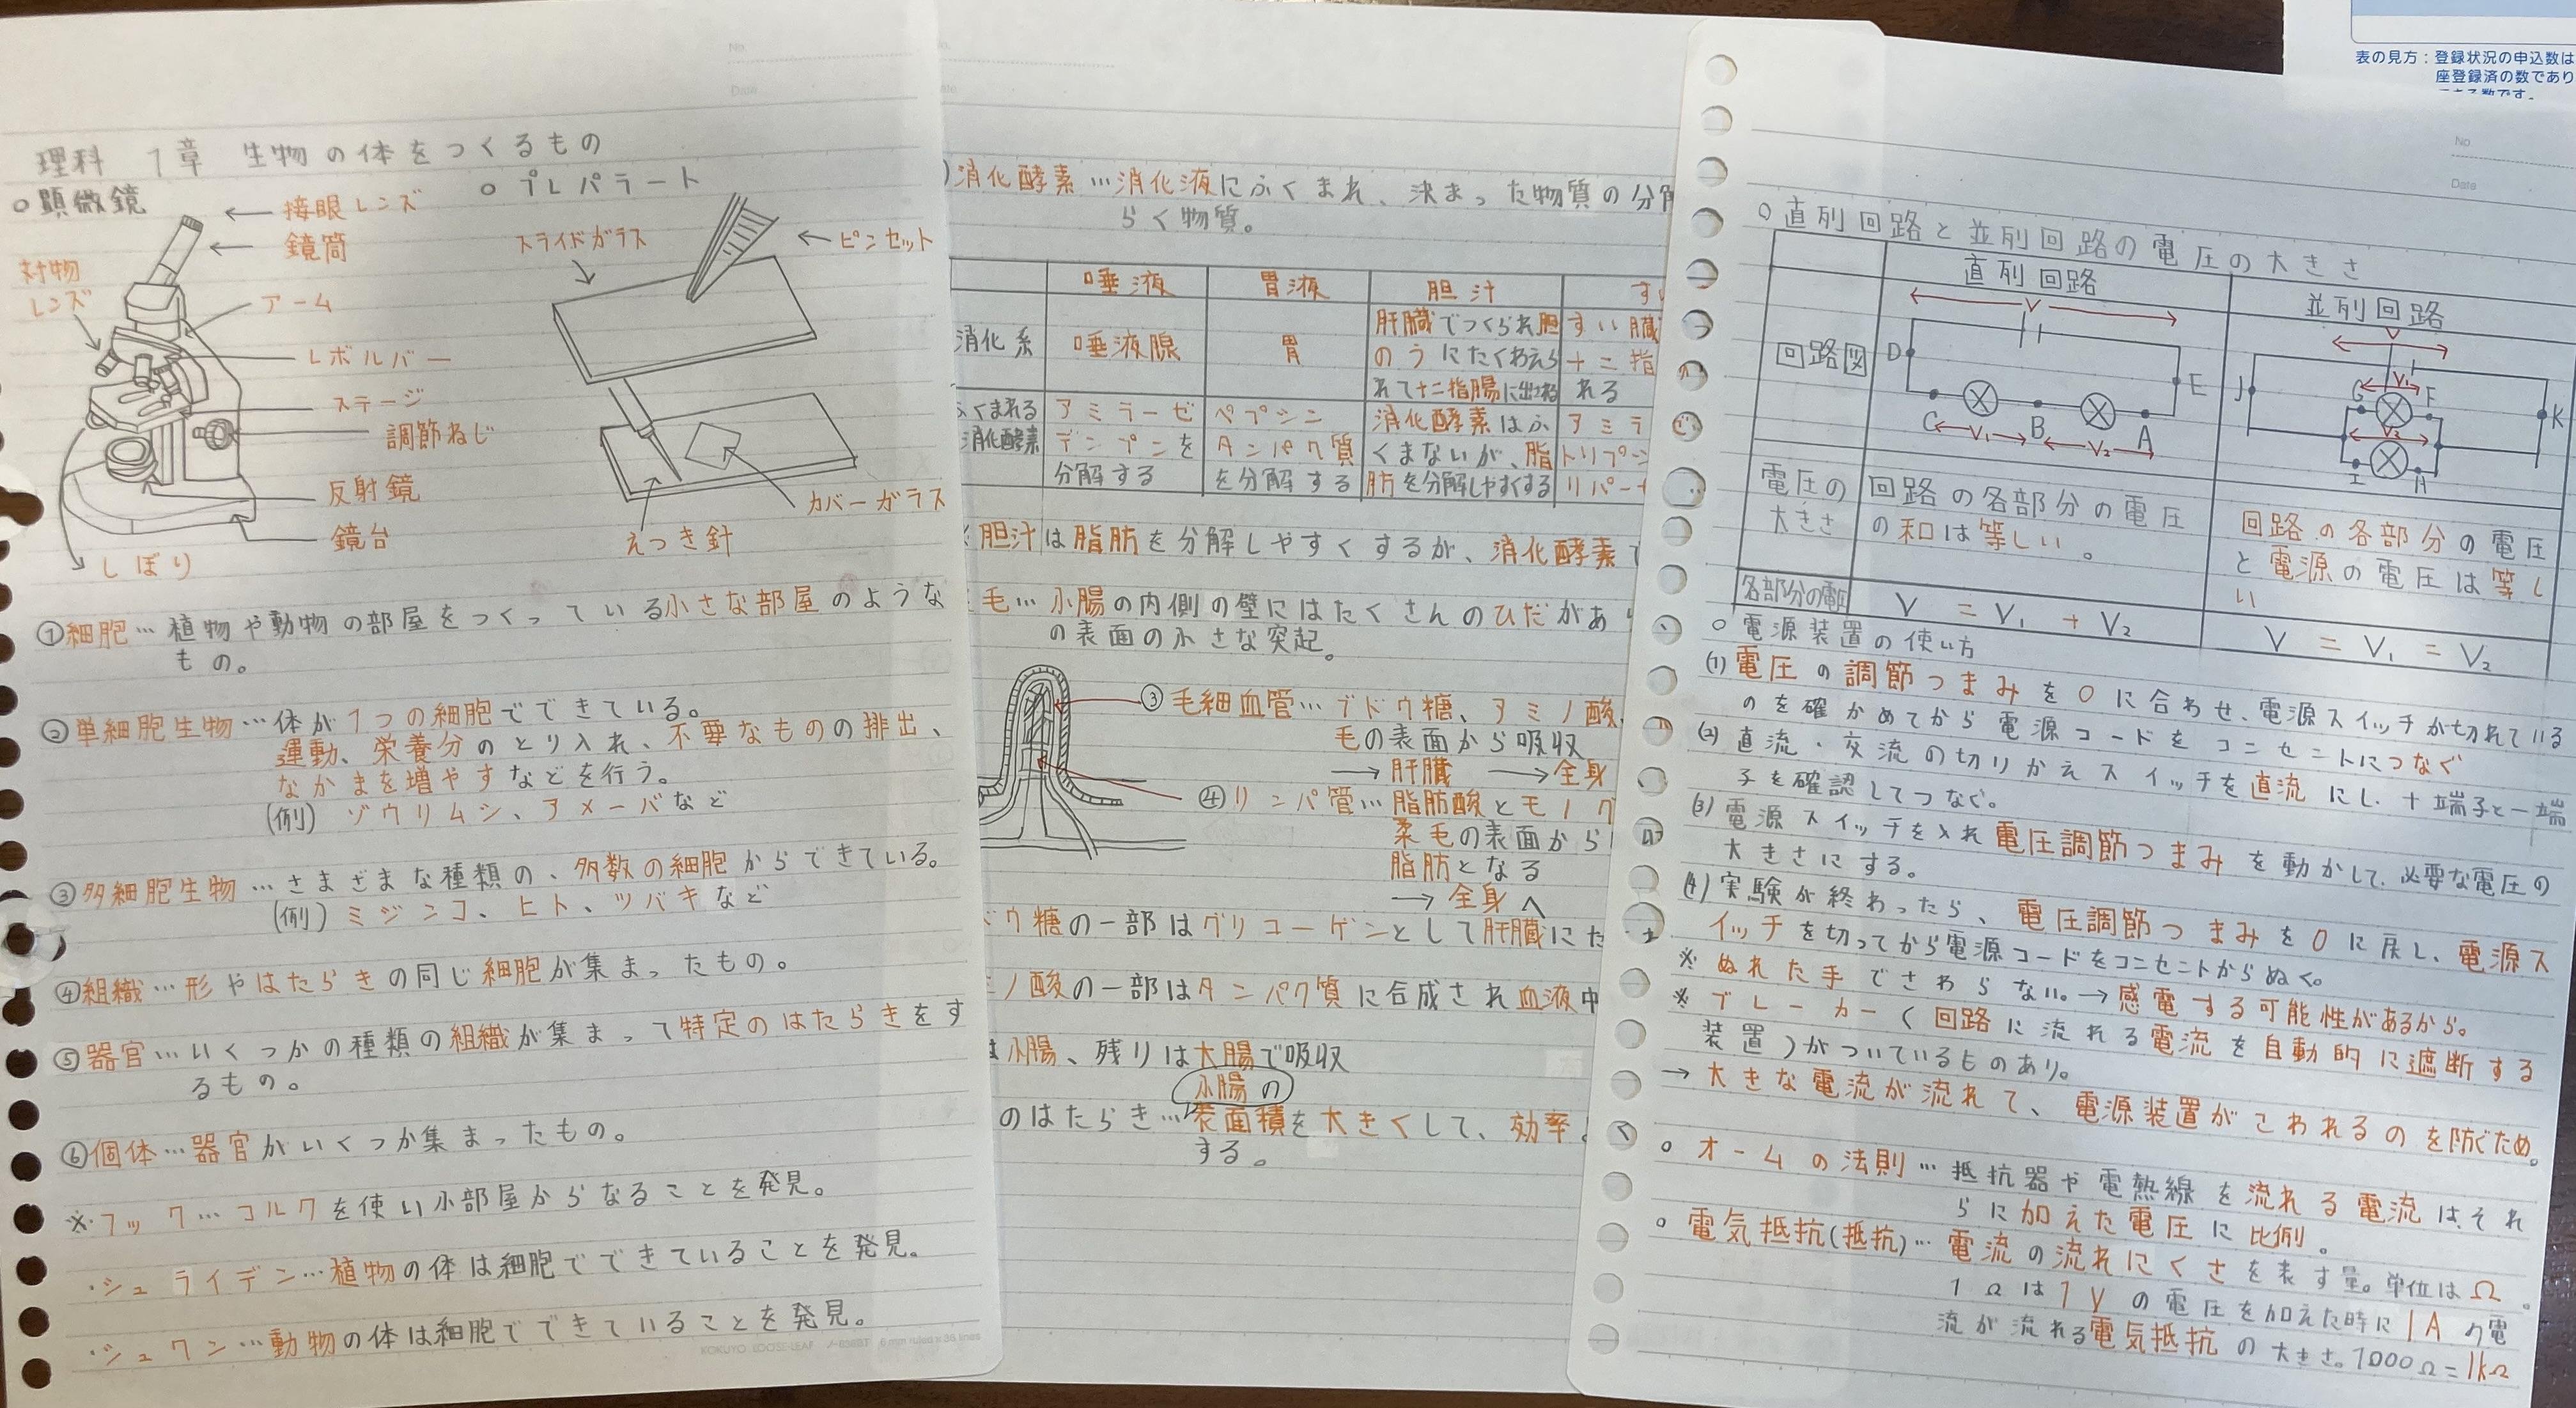 理科 1章 生物の体をつくるもの
○顕微鏡
○プレパラート
接眼レンズ
鏡筒
対物
レンズ
アーム
レボルバー
ステージ
調節ねじ
反射鏡
鏡台
しぼり
スライドガラス
ピンセット
カバーガラス
えつき針
①細胞…植物や動物の部屋をつくっている小さな部屋のような
もの。
②単細胞生物…体が1つの細胞でできている。
運動、栄養分のとり入れ、不要なものの排出、
なかまを増やすなどを行う。
(例) ゾウリムシ、アメーバなど
③多細胞生物…さまざまな種類の、多数の細胞からできている。
(例) ミジンコ、ヒト、ツバキなど
④組織…形やはたらきの同じ細胞が集まったもの。
⑤器官…いくつかの種類の組織が集まって特定のはたらきをす
るもの。
⑥個体…器官がいくつか集まったもの。
※・フック…コルクを使い小部屋からなることを発見。
・シュライデン…植物の体は細胞でできていることを発見。
・シュワン…動物の体は細胞でできていることを発見。
KOKUYO LOOSE-LEAF ノ-836BT 6 mm ruled x 36 lines
)消化酵素…消化液にふくまれ、決まった物質の分
らく物質。
唾液 胃液 胆汁 す
消化系 唾液腺 胃 肝臓でつくられ胆
のうにたくわえら
れて十二指腸に出される
すい臓
十二指
れる
ふくまれる
消化酵素
アミラーゼ
デンプンを
分解する
ペプシン
タンパク質
を分解する
消化酵素はふ
くまないが、脂
肪を分解しやすくする
アミラ
トリプシ
リパー
胆汁は脂肪を分解しやすくするが、消化酵素
毛…小腸の内側の壁にはたくさんのひだがあ
の表面の小さな突起。
③毛細血管…ブドウ糖、アミノ酸
毛の表面から吸収
→肝臓 →全身
④リンパ管…脂肪酸とモノグ
柔毛の表面から
脂肪となる
→全身へ
ドウ糖の一部はグリコーゲンとして肝臓にた
ミノ酸の一部はタンパク質に合成され血液中
は小腸、残りは大腸で吸収
小腸の
のはたらき…表面積を大きくして、効率
する。
No
Date
○直列回路と並列回路の電圧の大きさ
直列回路 並列回路
回路図
V
D E
C B A
V₁ V₂
V
J K
G F
V₁
V₂
I H
電圧の
大きさ
回路の各部分の電圧
の和は等しい。
回路の各部分の電圧
と電源の電圧は等し
い
各部分の電圧 V = V₁ + V₂
V = V₁ = V₂
○電源装置の使い方
(1)電圧の調節つまみを0に合わせ、電源スイッチが切れている
のを確かめてから電源コードをコンセントにつなぐ
(2)直流・交流の切りかえスイッチを直流にし、+端子と-端
子を確認してつなぐ。
(3)電源スイッチを入れ電圧調節つまみを動かして、必要な電圧の
大きさにする。
(4)実験が終わったら、電圧調節つまみを0に戻し、電源ス
イッチを切ってから電源コードをコンセントからぬく。
※ぬれた手でさわらない。→感電する可能性があるから。
※ブレーカー(回路に流れる電流を自動的に遮断する
装置)がついているものあり。
→大きな電流が流れて、電源装置がこわれるのを防ぐため。
○オームの法則…抵抗器や電熱線を流れる電流は、それ
らに加えた電圧に比例。
○電気抵抗(抵抗)…電流の流れにくさを表す量。単位はΩ。
1Ωは1Vの電圧を加えた時に1Aの電
流が流れる電気抵抗の大きさ。1000Ω=1kΩ
表の見方:登録状況の申込数は
座登録済の数であり